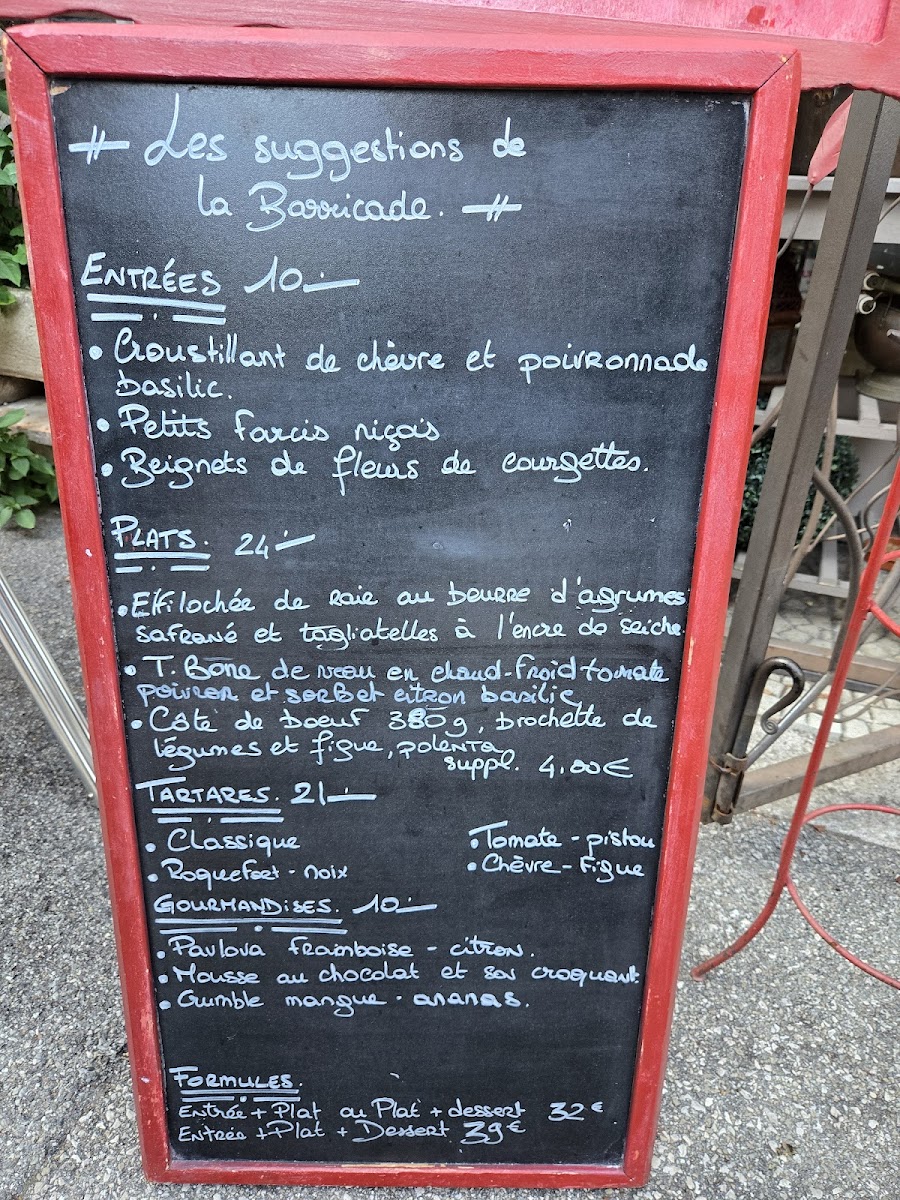 Les suggestions de
la Barricade.
ENTRÉES 10.-
• Croustillant de chèvre et poivronnade
basilic.
• Petits farcis niçois
• Beignets de fleurs de courgettes.
PLATS. 24.-
• Effilochée de raie au beurre d'agrumes
safrané et tagliatelles à l'encre de seiche.
• T. Bone de veau en chaud-froid tomate
poivron et sorbet citron basilic
• Côte de boeuf 380g, brochette de
légumes et figue, polenta
suppl. 4,00€
TARTARES. 21.-
• Classique
• Tomate - pistou
• Roquefort - noix
• Chèvre - Figue
GOURMANDISES. 10.-
• Pavlova framboise - citron.
• Mousse au chocolat et son croquant.
• Crumble mangue - ananas.
FORMULES.
Entrée + Plat ou Plat + dessert 32€
Entrée + Plat + Dessert 39€